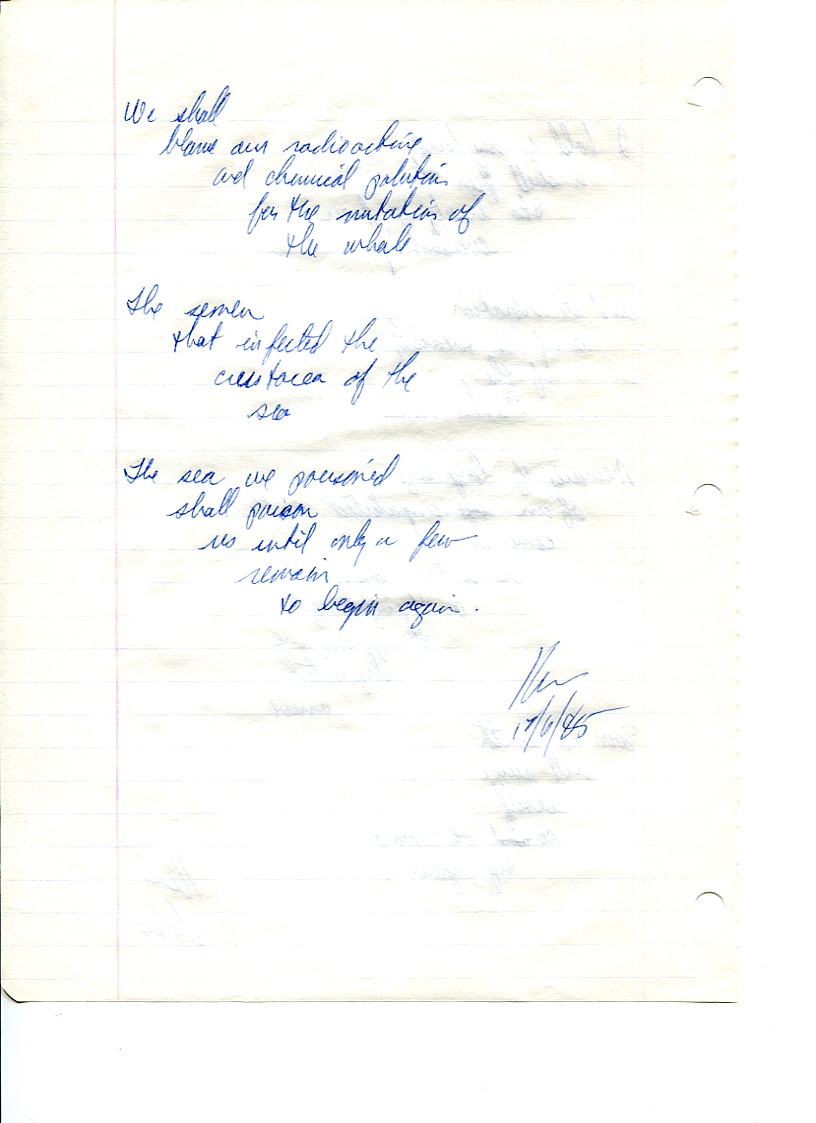 We shall
blame our radioactive
and chemical polution
for the mutation of
the whale
The semen
that infected the
crustacea of the
sea
The sea we poisoned
shall poison
us until only a few
remain
to begin again.
17/6/85